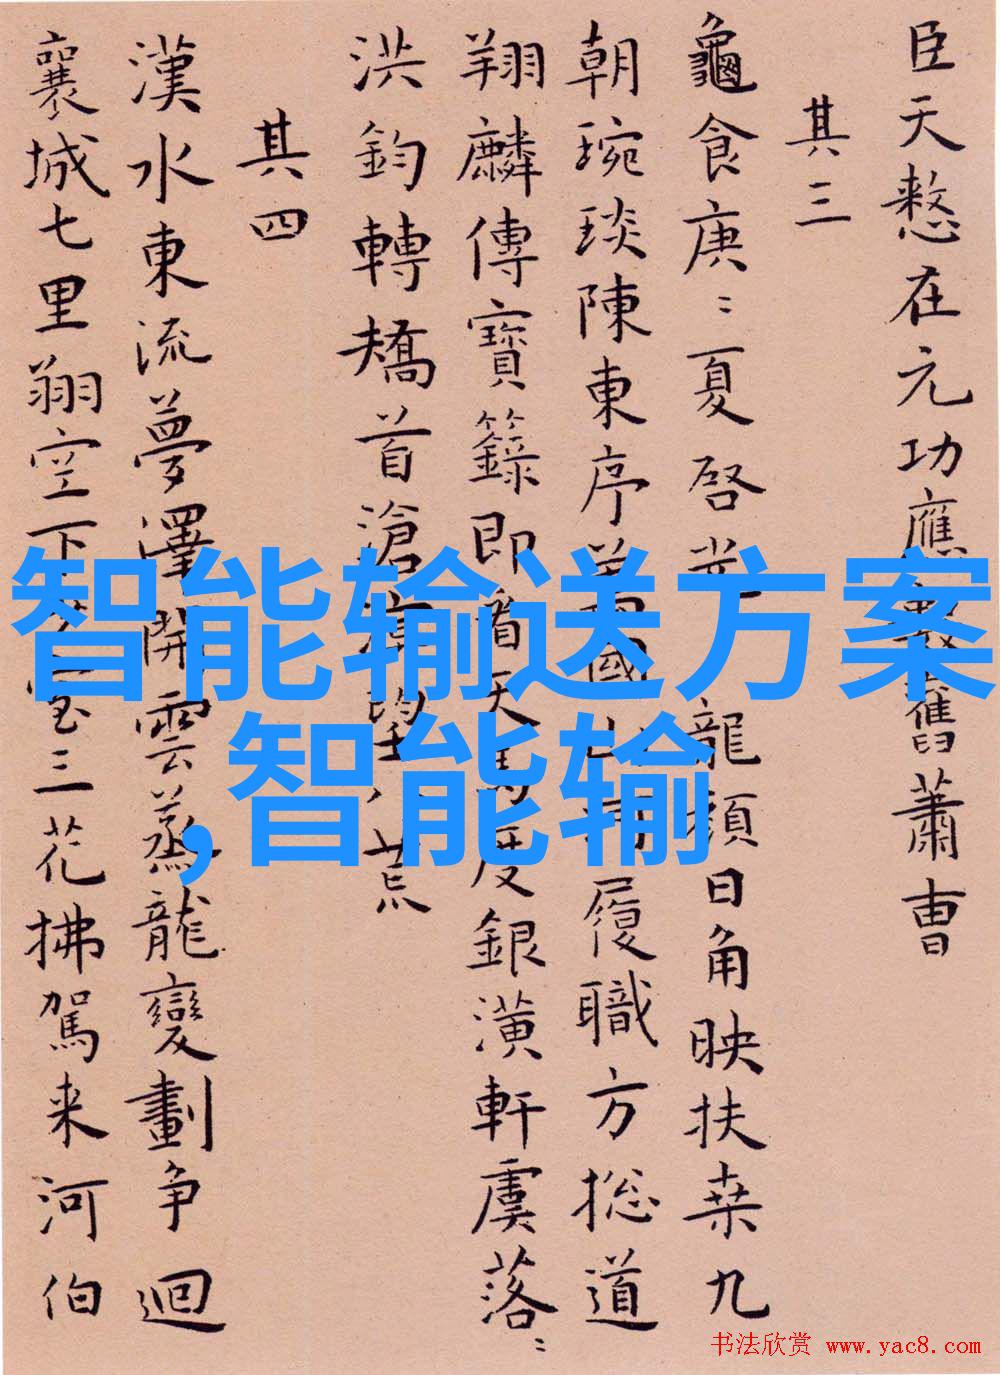 臣天憖在元功應 舊蕭曹
其三
龜食庚〻夏啓 龍顏日角映扶桒九
朝琬琰陳東序 國 履職方捴道
翔麟傳寶籙即看天馬度銀潢軒虞落〻
洪鈞轉矯首滄 荒
其四
漢水東流夢澤開雲蒸龍變劃争迴
襄城七里翔空下 室三花拂駕来河伯
智能输送方案
,智能输
书法欣赏 www.yac8.com